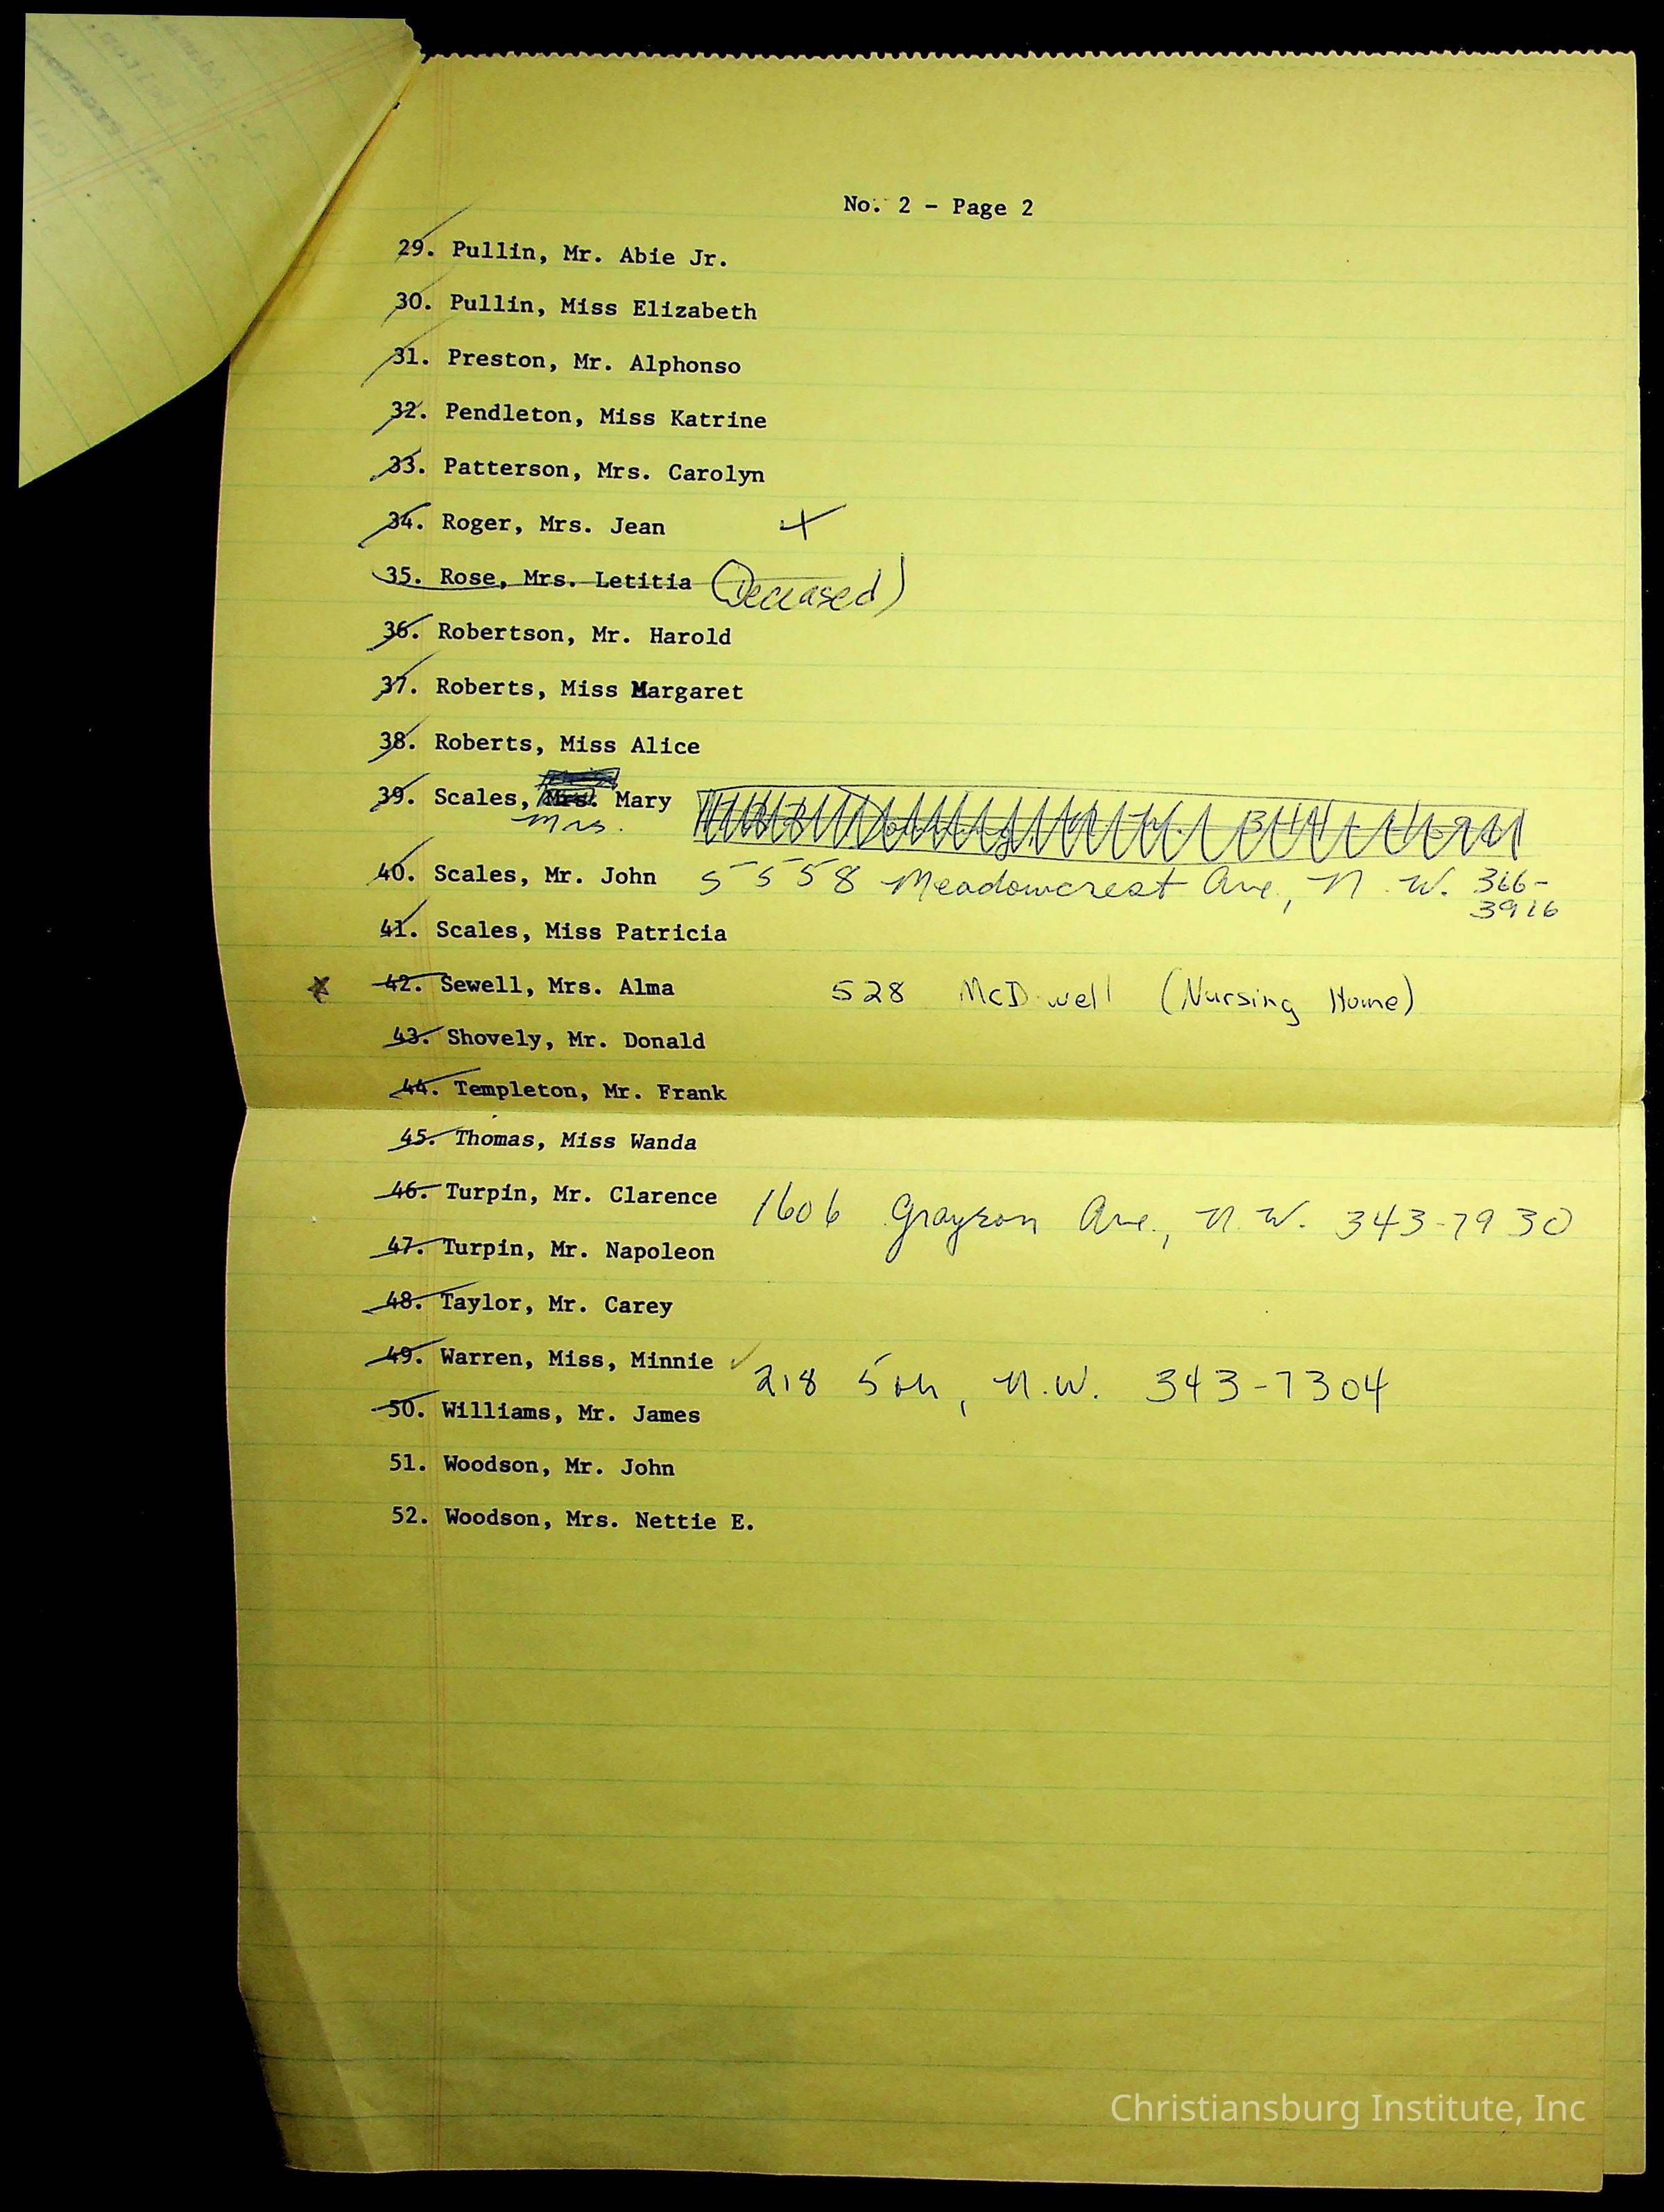 No. 2 - Page 2
29. Pullin, Mr. Abie Jr.
30. Pullin, Miss Elizabeth
31. Preston, Mr. Alphonso
32. Pendleton, Miss Katrine
33. Patterson, Mrs. Carolyn
34. Roger, Mrs. Jean
35. Rose, Mrs. Letitia (Deceased)
36. Robertson, Mr. Harold
37. Roberts, Miss Margaret
38. Roberts, Miss Alice
39. Scales, Mary
Mrs.
40. Scales, Mr. John 5558 Meadowcrest Ave., N.W. 366-
3916
41. Scales, Miss Patricia
42. Sewell, Mrs. Alma 528 McDowell (Nursing Home)
43. Shovely, Mr. Donald
44. Templeton, Mr. Frank
45. Thomas, Miss Wanda
46. Turpin, Mr. Clarence 1606 Grayson Ave., N.W. 343-7930
47. Turpin, Mr. Napoleon
48. Taylor, Mr. Carey
49. Warren, Miss, Minnie ✓ 218 5th, N.W. 343-7304
50. Williams, Mr. James
51. Woodson, Mr. John
52. Woodson, Mrs. Nettie E.
Christiansburg Institute, Inc